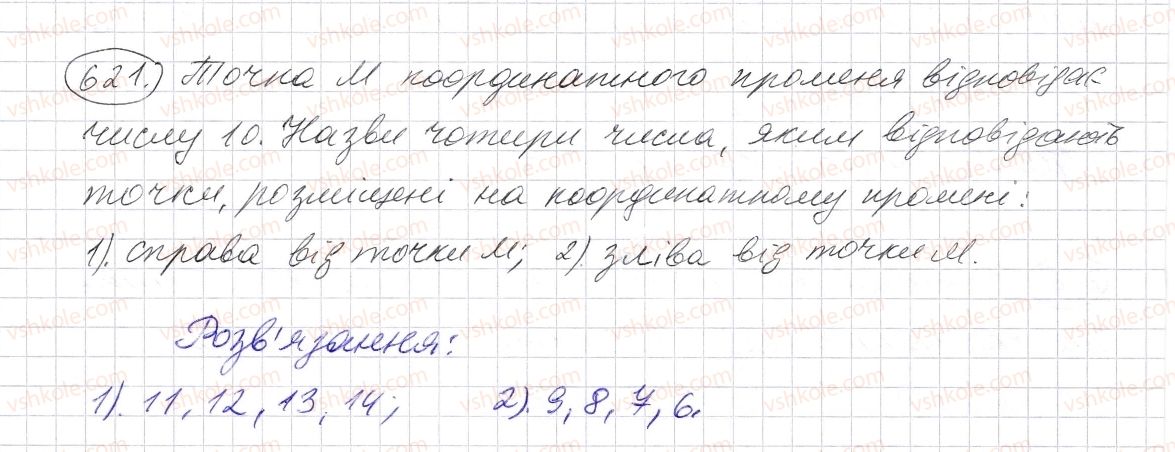 621.) Точка М координатного променя відповідає
числу 10. Назви чотири числа, яким відповідають
точки, розміщені на координатному промені:
1). справа від точки М; 2). зліва від точки М.
Розв'язання:
1). 11, 12, 13, 14; 2). 9, 8, 7, 6.